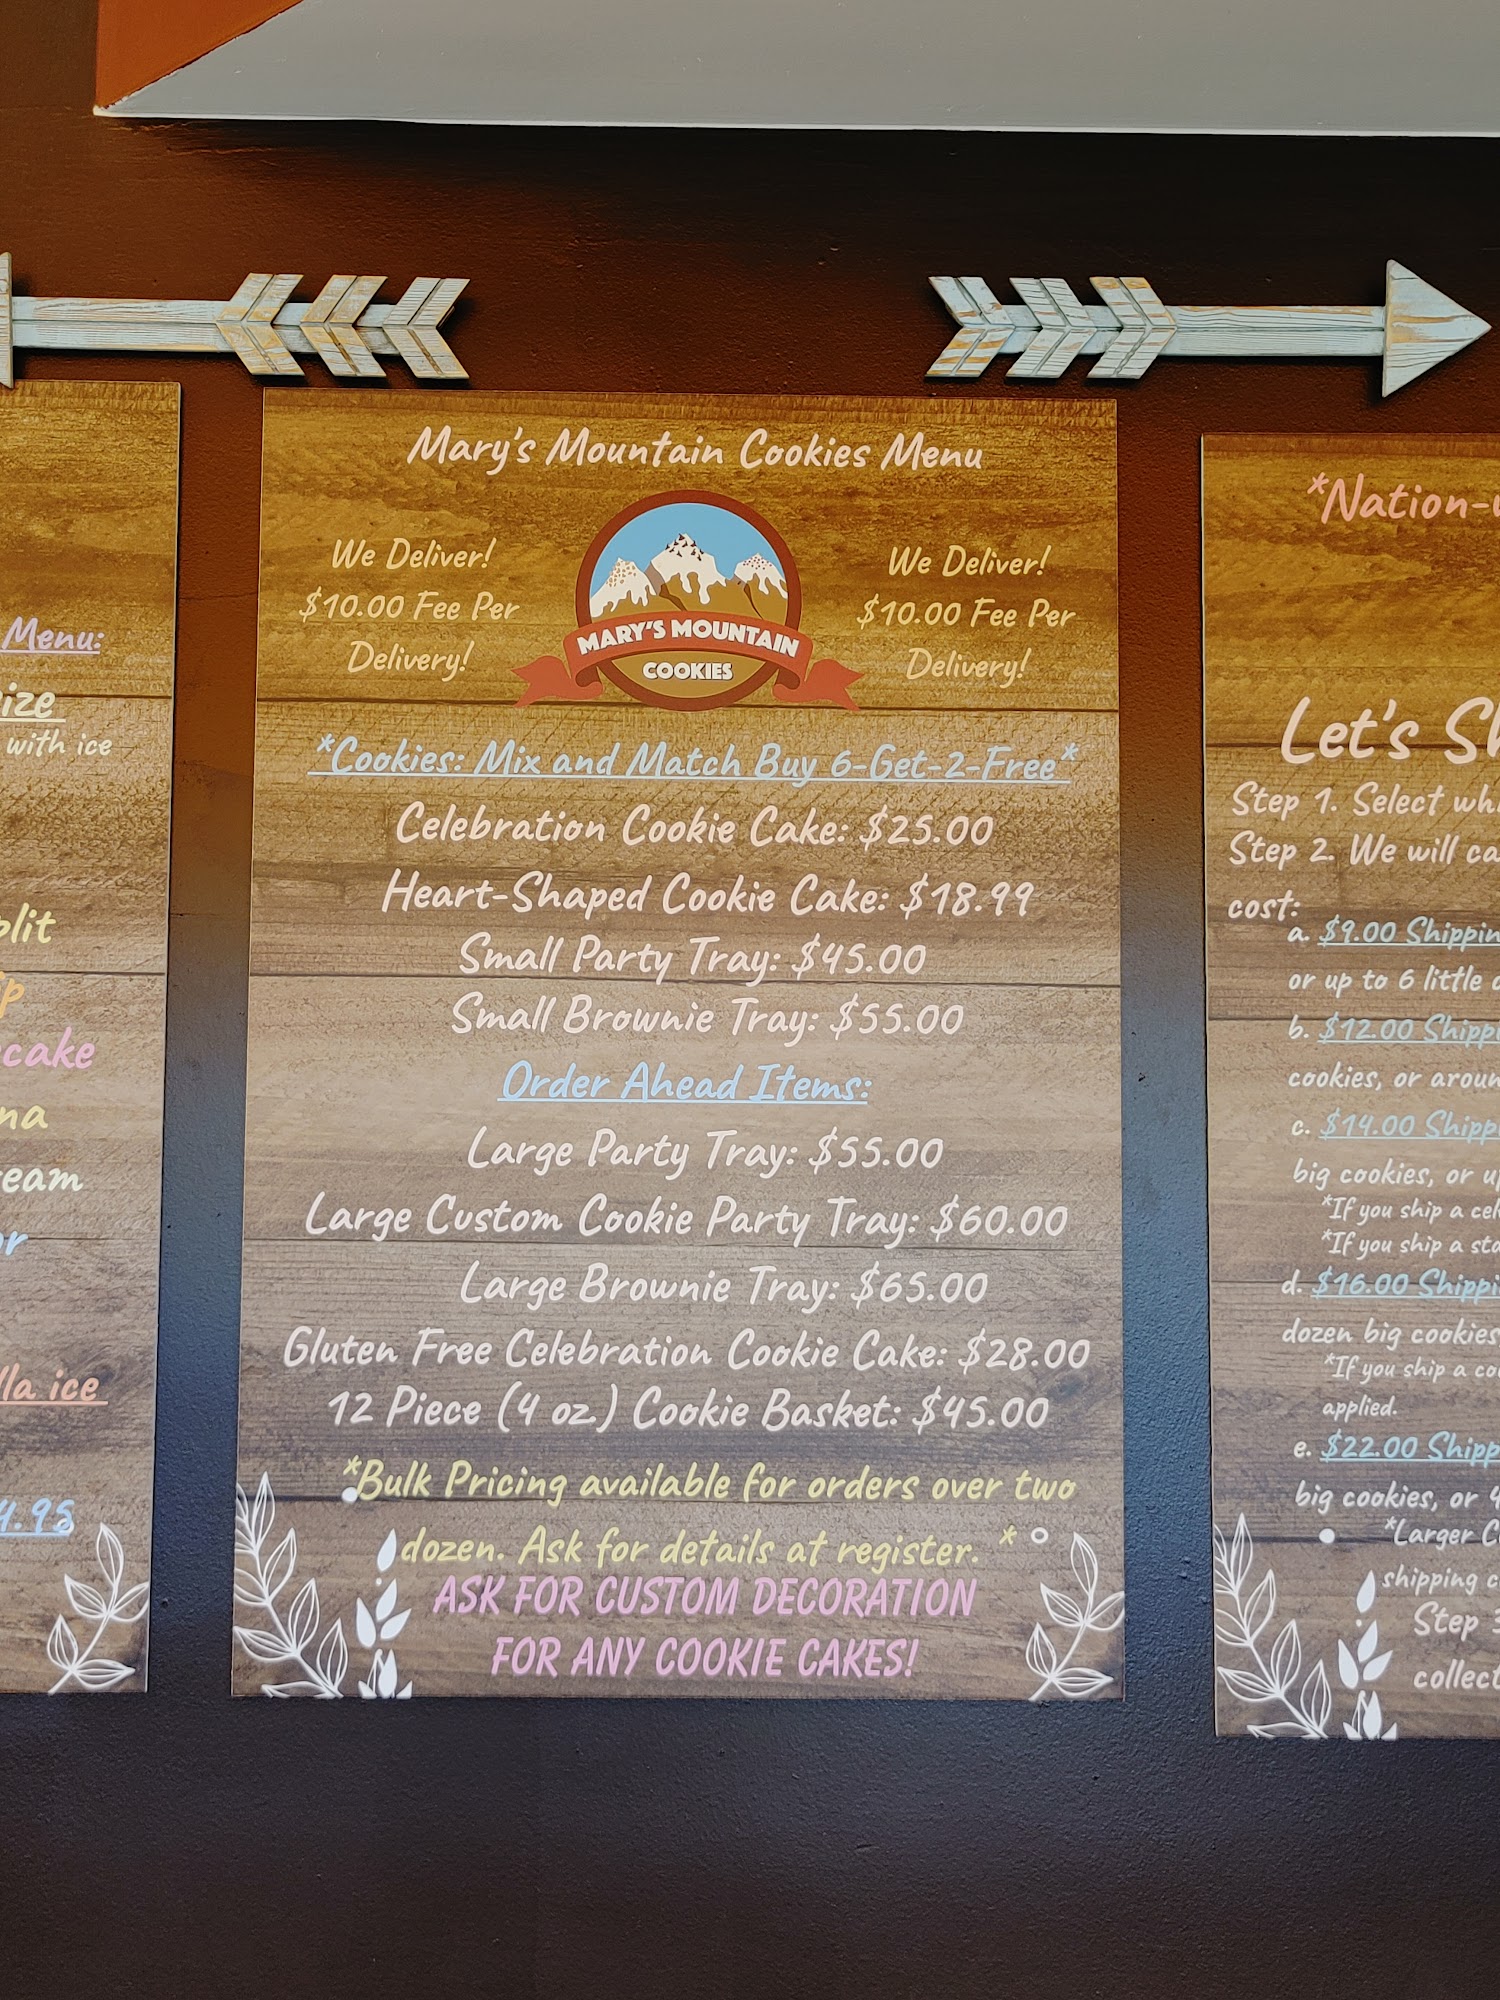 Menu:
ize
with ice
plit
p
cake
na
eam
or
lla ice
4.95
Mary's Mountain Cookies Menu
We Deliver!
$10.00 Fee Per
Delivery!
MARY'S MOUNTAIN
COOKIES
We Deliver!
$10.00 Fee Per
Delivery!
*Cookies: Mix and Match Buy 6-Get-2-Free*
Celebration Cookie Cake: $25.00
Heart-Shaped Cookie Cake: $18.99
Small Party Tray: $45.00
Small Brownie Tray: $55.00
Order Ahead Items:
Large Party Tray: $55.00
Large Custom Cookie Party Tray: $60.00
Large Brownie Tray: $65.00
Gluten Free Celebration Cookie Cake: $28.00
12 Piece (4 oz.) Cookie Basket: $45.00
*Bulk Pricing available for orders over two
dozen. Ask for details at register. *
ASK FOR CUSTOM DECORATION
FOR ANY COOKIE CAKES!
*Nation-
Let's Sh
Step 1. Select wh
Step 2. We will ca
cost:
a. $9.00 Shippin
or up to 6 little
b. $12.00 Shippi
cookies, or aroun
c. $14.00 Shippi
big cookies, or u
*If you ship a cel
*If you ship a sta
d. $16.00 Shippi
dozen big cookies
*If you ship a co
applied.
e. $22.00 Shipp
big cookies, or 4
*Larger C
shipping c
Step 3
collect